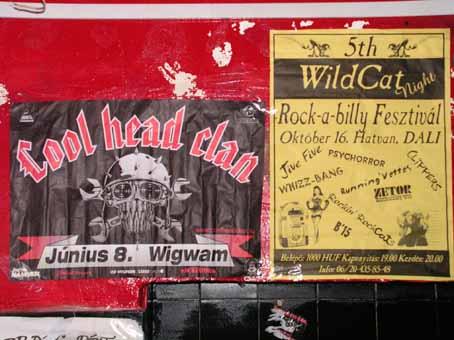 Cool head clan
Június 8. Wigwam
5th
WildCat
Night
Rock-a-billy Fesztivál
Október 16. Hatvan, DALI
Jive Five
PSYCHORROR
CLIPPERS
WHIZZ-BANG
Running Wattes
ZETOR
Rockin' RockCats
B'15
Belépő: 1000 HUF Kapunyitás: 19.00 Kezdés: 20.00
Infó: 06/20-435-85-48